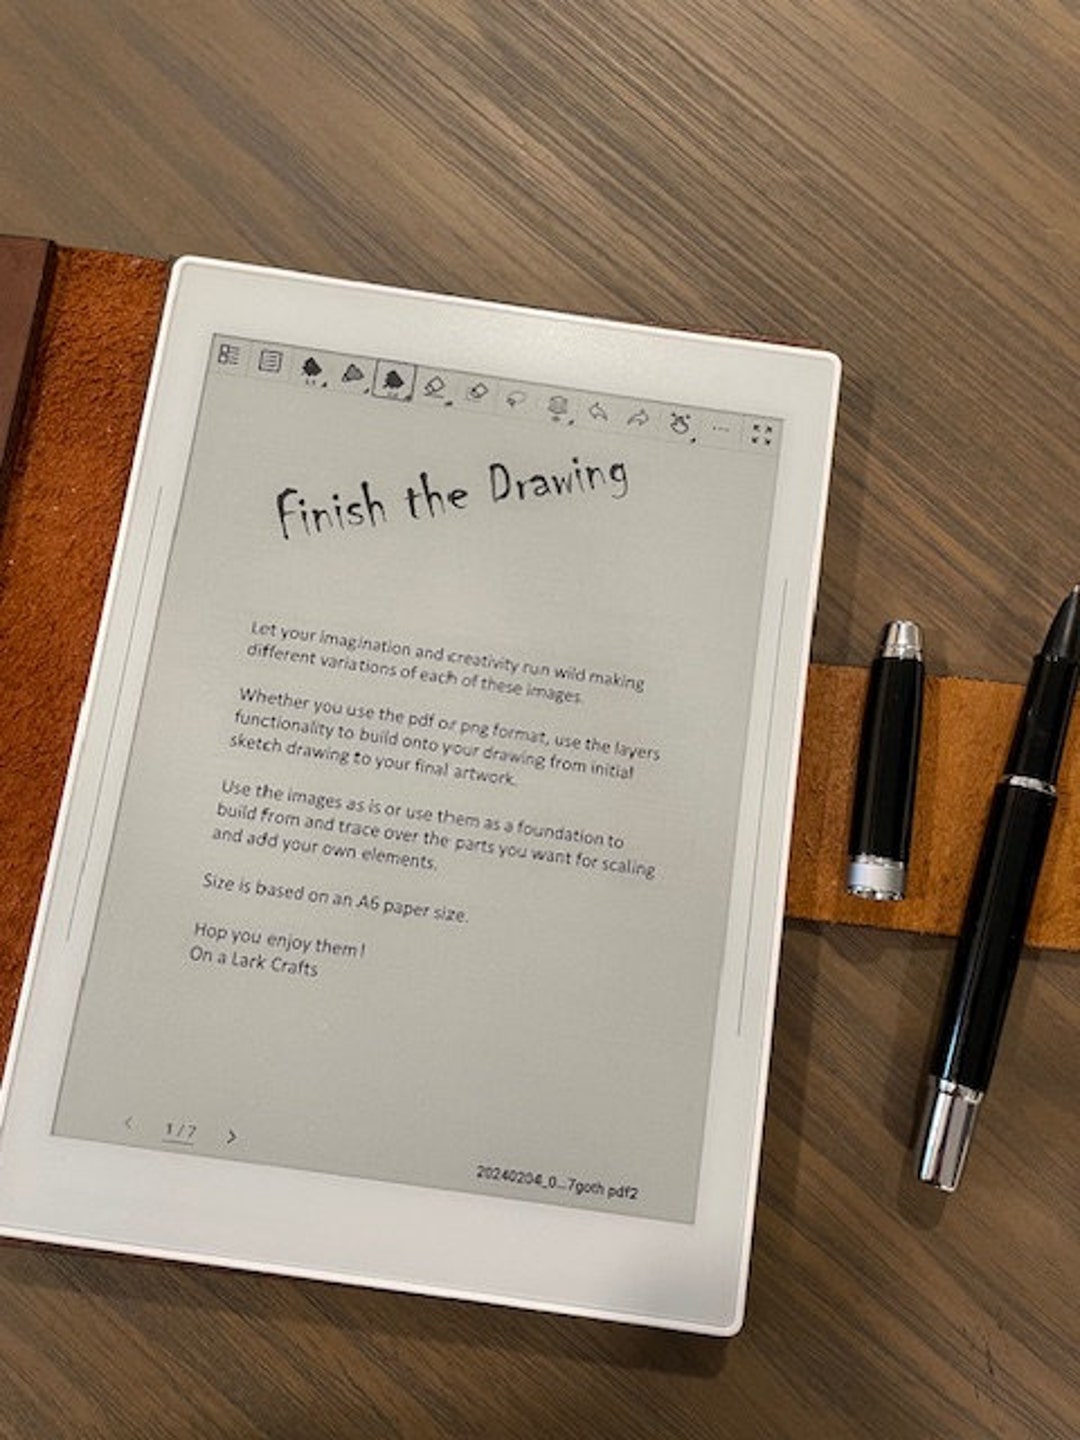 Finish the Drawing
Let your imagination and creativity run wild making
different variations of each of these images.
Whether you use the pdf or png format, use the layers
functionality to build onto your drawing from initial
sketch drawing to your final artwork.
Use the images as is or use them as a foundation to
build from and trace over the parts you want for scaling
and add your own elements.
Size is based on an A6 paper size.
Hop you enjoy them!
On a Lark Crafts
1 / 7
20240204_0...7goth pdf2